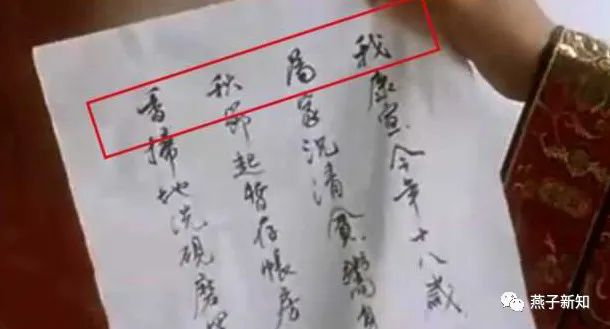 我康宣今年十八歲
為家況清貧鬻身
秋節起暫存帳房
香掃地洗硯磨墨
燕子新知